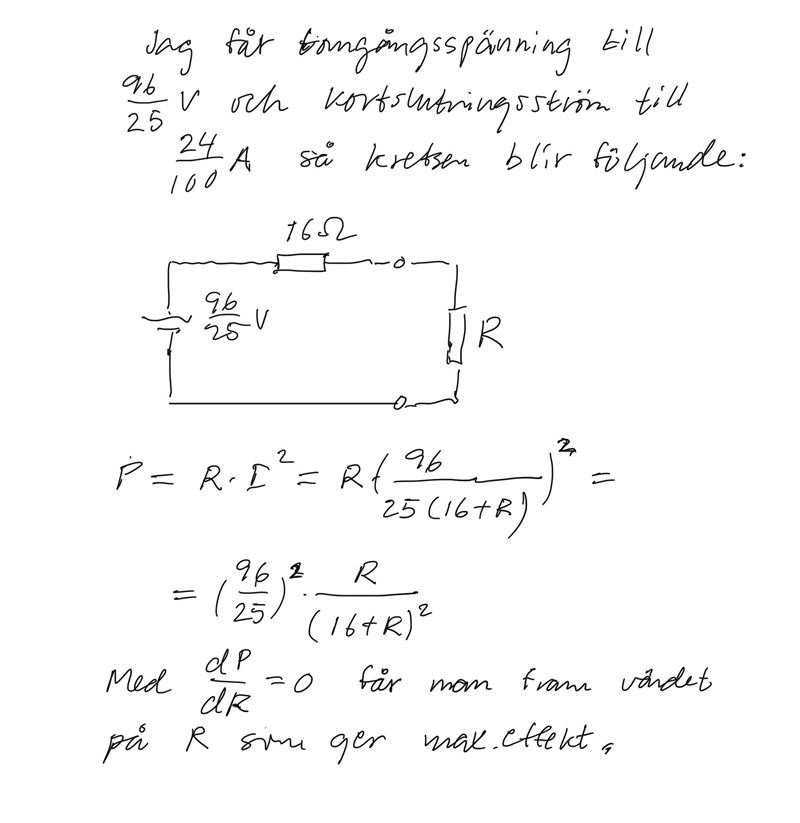 Jag får tomgångsspänning till
96/25 V och kortslutningsström till
24/100 A så kretsen blir följande:
16Ω
96/25 V
R
P = R · I² = R (96/(25(16+R)))² =
= (96/25)² · R/(16+R)²
Med dP/dR = 0 får man fram värdet
på R som ger max.effekt.